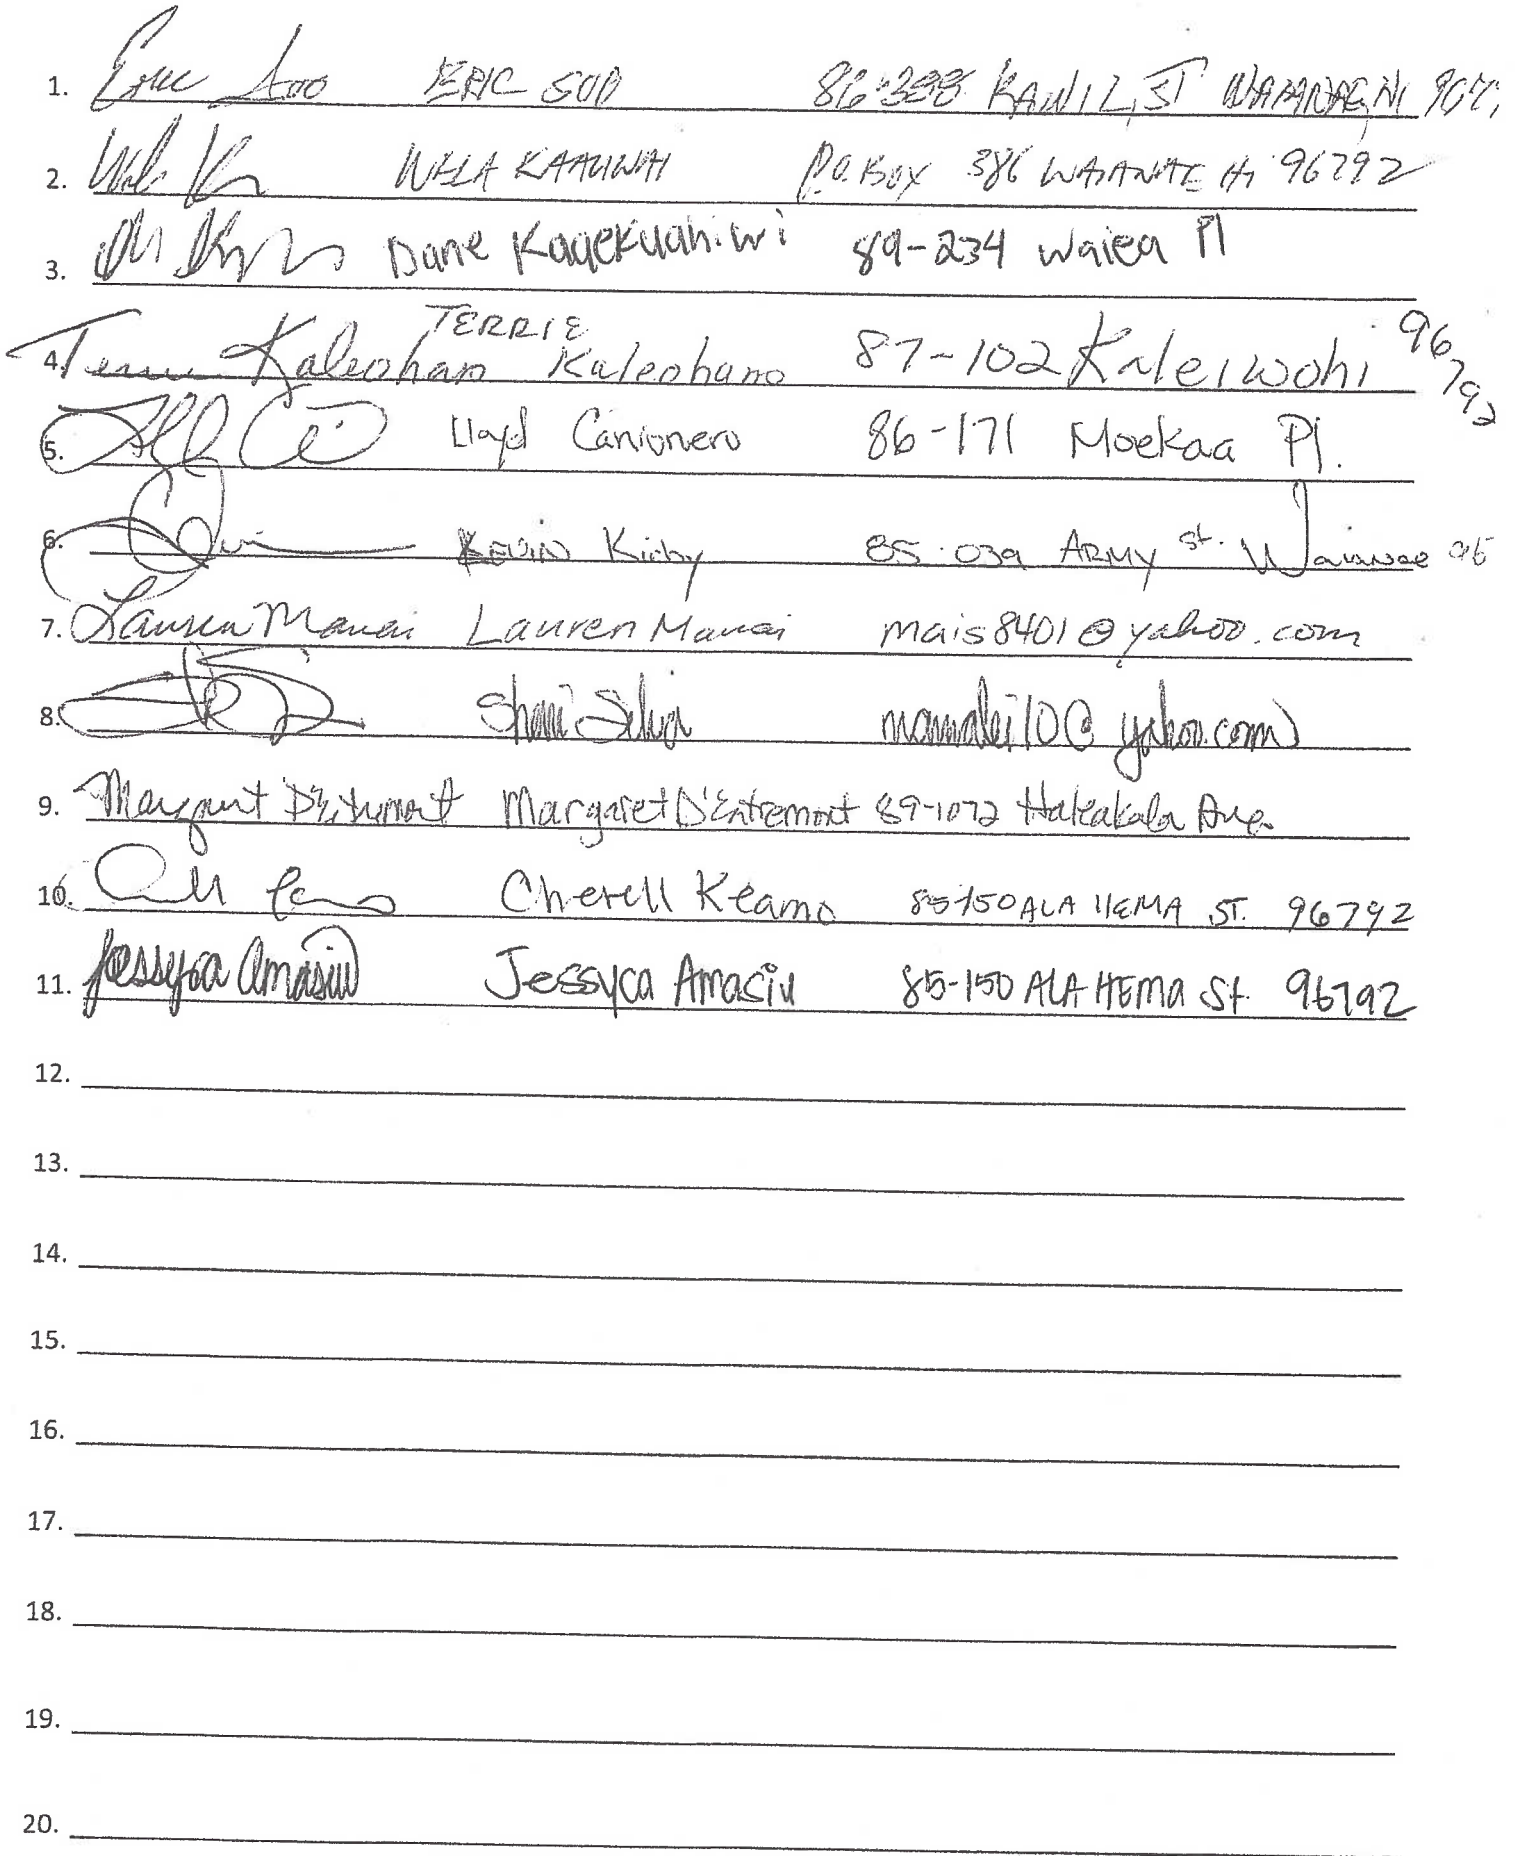 1. Eric Soo ERIC SOO 86-388 KAWILI ST WAIANAE, HI
2. KAAUWAI P.O. BOX 386 WAIANAE Hi 96792
3. Dane Kaqekuahiwi 89-234 Waiea Pl
TERRIE
4. Kaleohano Kaleohano 87-102 Kaleiwohi 96792
5. Lloyd Canionero 86-171 Moekaa Pl.
6. KEVIN Kirby 85-039 ARMY St. Waianae
7. Lauren Manai Lauren Manai mais8401@yahoo.com
8. Silva mamalei10@yahoo.com
9. Margaret D'Entremont Margaret D'Entremont 89-1072 Haleakala Ave.
10. Cherell Keamo 85-150 ALA HEMA ST. 96792
11. Jessyca Amasiu Jessyca Amasiu 85-150 ALA HEMA St. 96792
12.
13.
14.
15.
16.
17.
18.
19.
20.